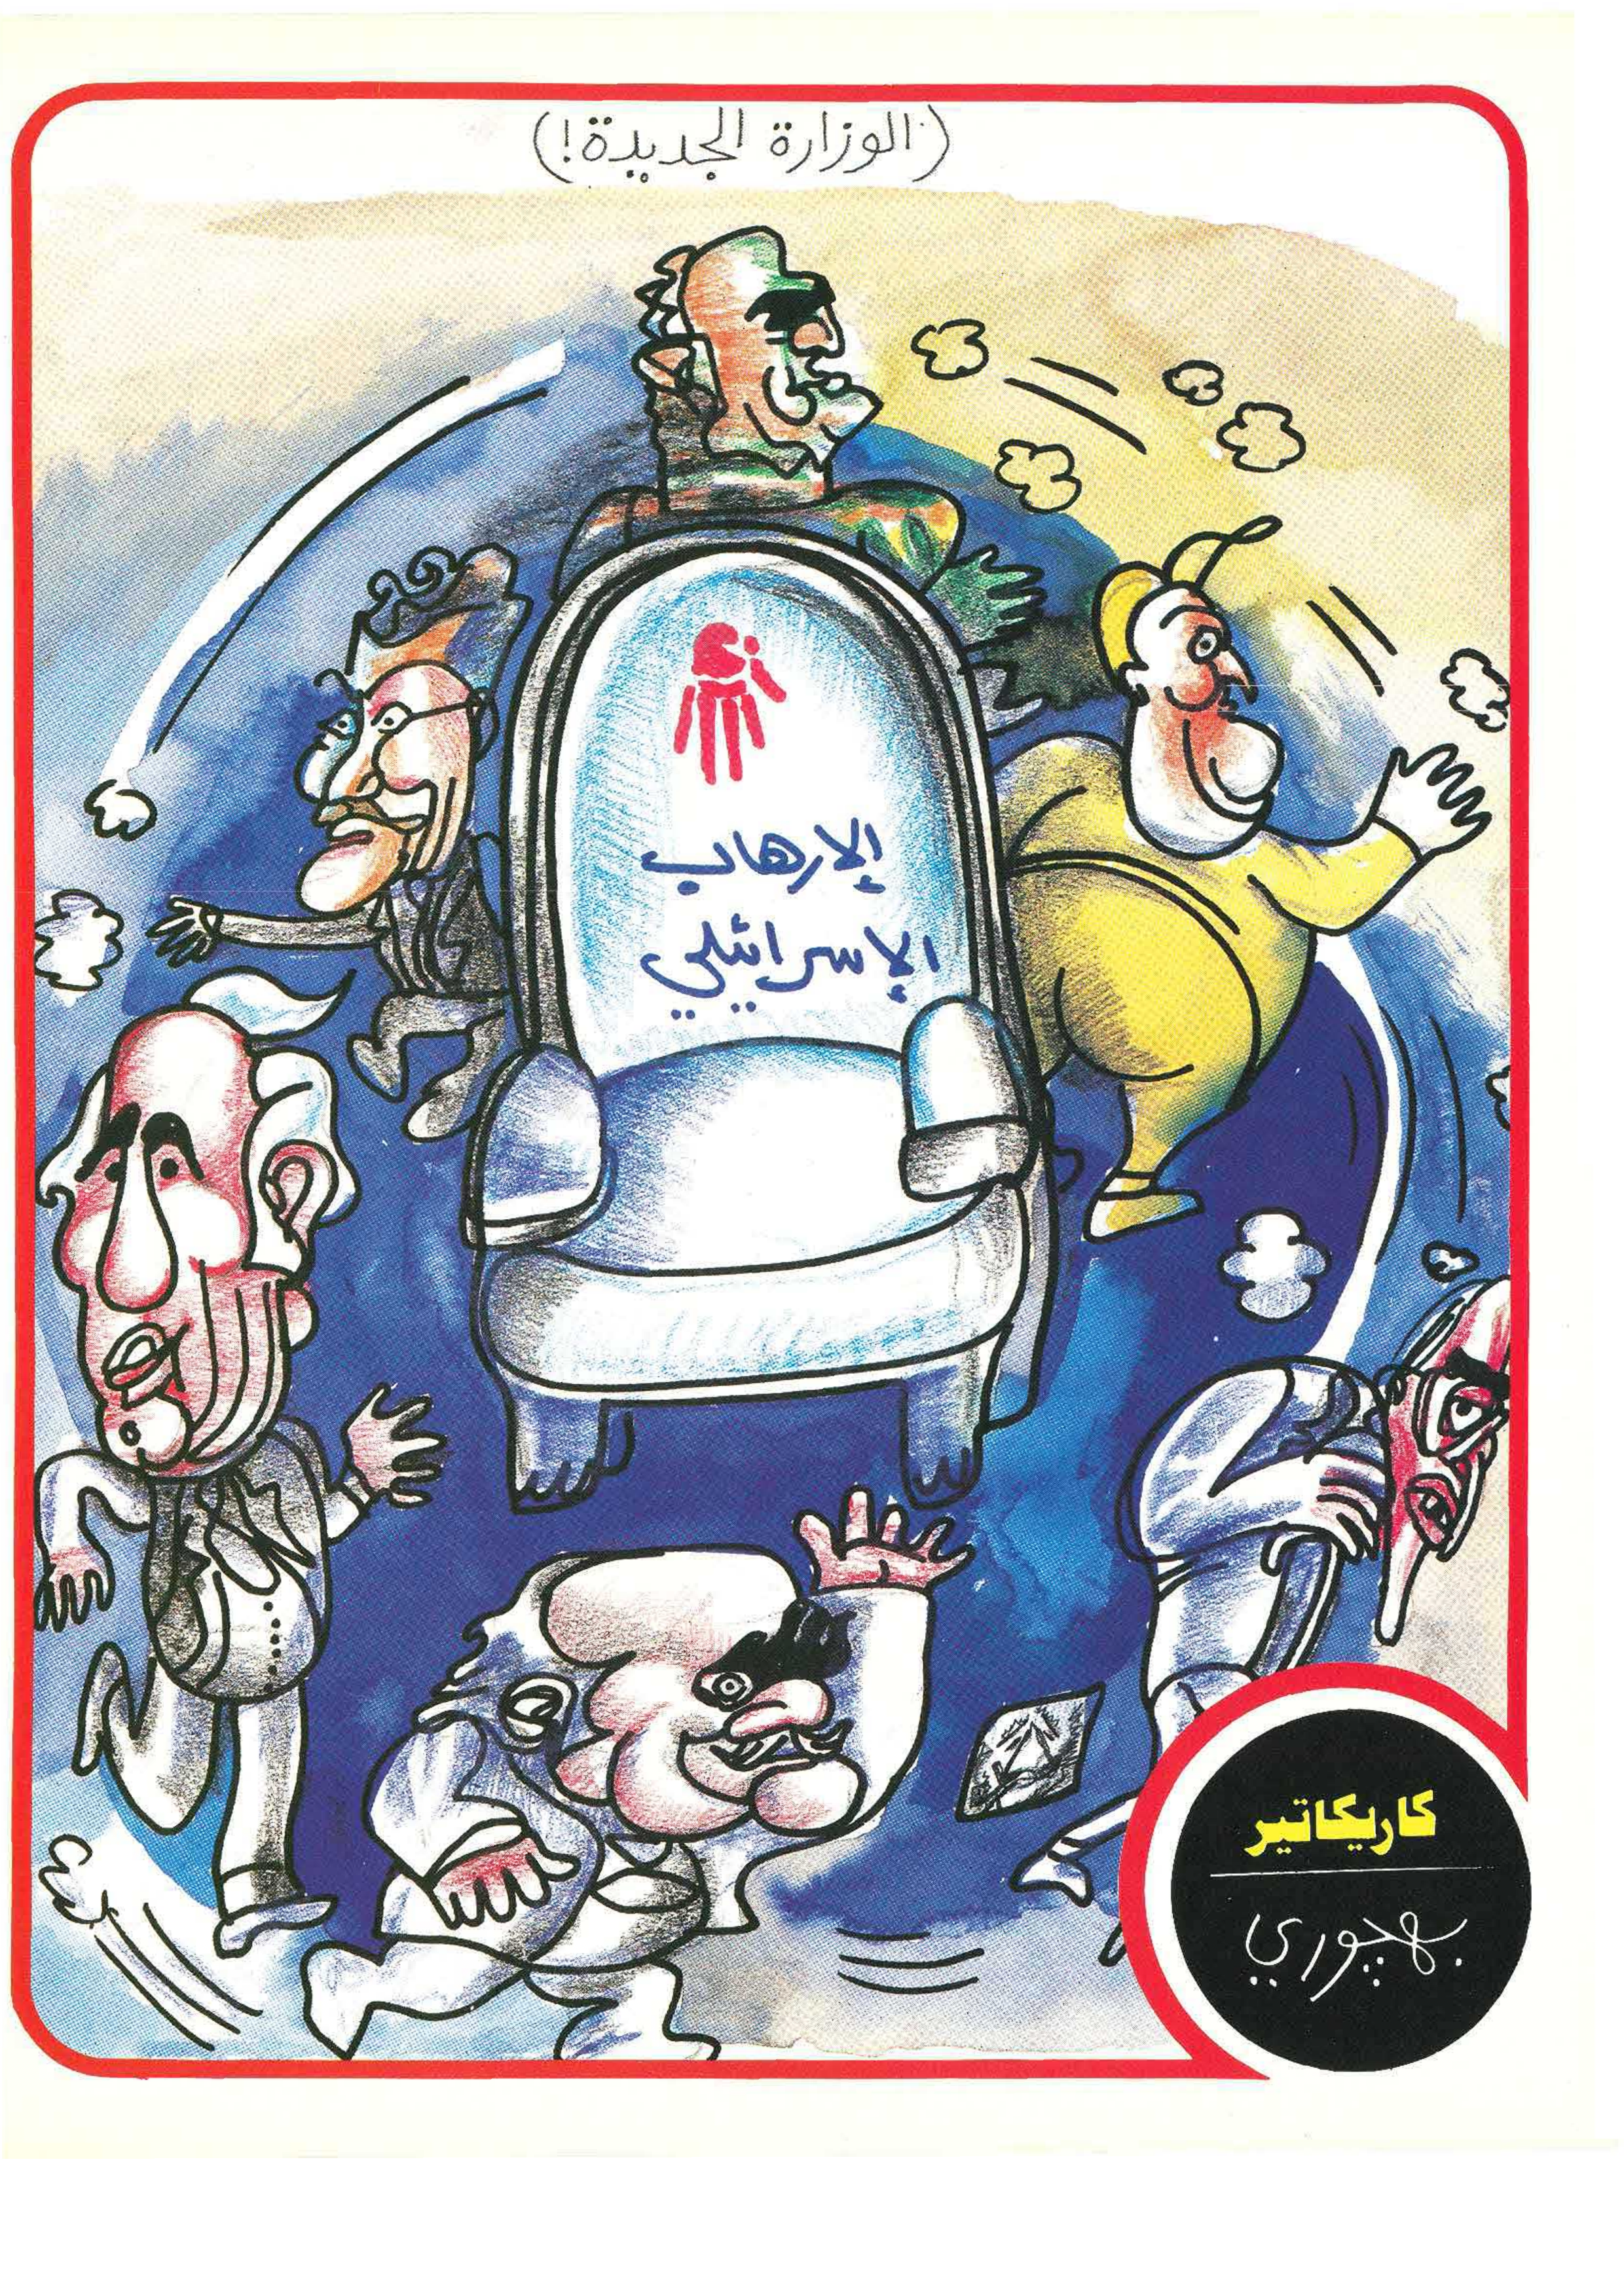 (الوزارة الجديدة!)
الإرهاب
الإسرائيلي
كاريكاتير
بهجوري